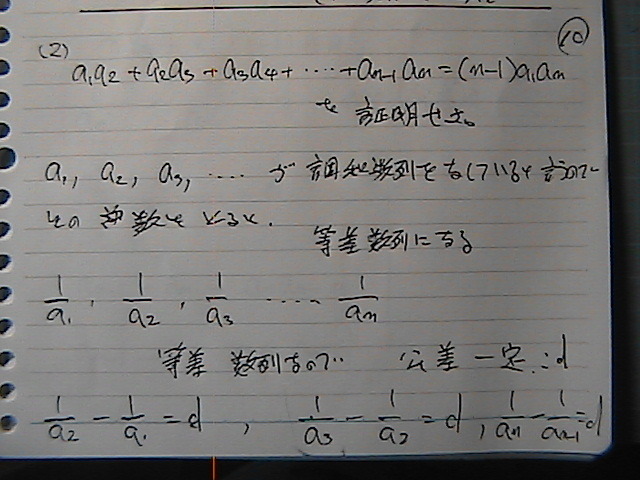 (2)
10
a₁a₂ + a₂a₃ + a₃a₄ + ‥‥ + aₙ₋₁aₙ = (n-1)a₁aₙ
を 証明せよ。
a₁, a₂, a₃, ‥‥ が 調和数列をなしているを言うので
その逆数をとると.
等差数列になる
1/a₁ , 1/a₂ , 1/a₃ ‥‥ 1/aₙ
等差数列なので 公差一定:d
1/a₂ - 1/a₁ = d , 1/a₃ - 1/a₂ = d , 1/aₙ - 1/aₙ₋₁ = d